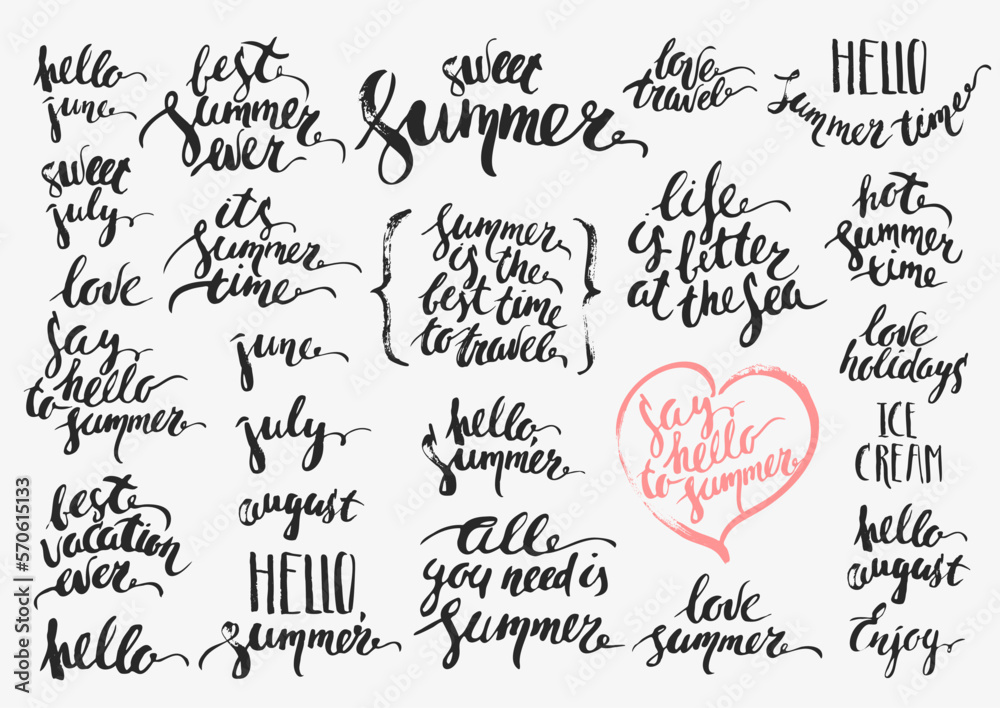 hello
june
sweet
july
love
say
hello
to summer
best
vacation
ever
hello
best
summer
ever
its
summer
time
june
july
august
HELLO,
summer
sweet
summer
summer
is the
best time
to travel
hello,
summer
all
you need is
summer
love
travel
life
is better
at the sea
say
hello
to summer
love
summer
HELLO
summer time
hot
summer
time
love
holidays
ICE
CREAM
hello
august
Enjoy
Adobe Stock | #570615133